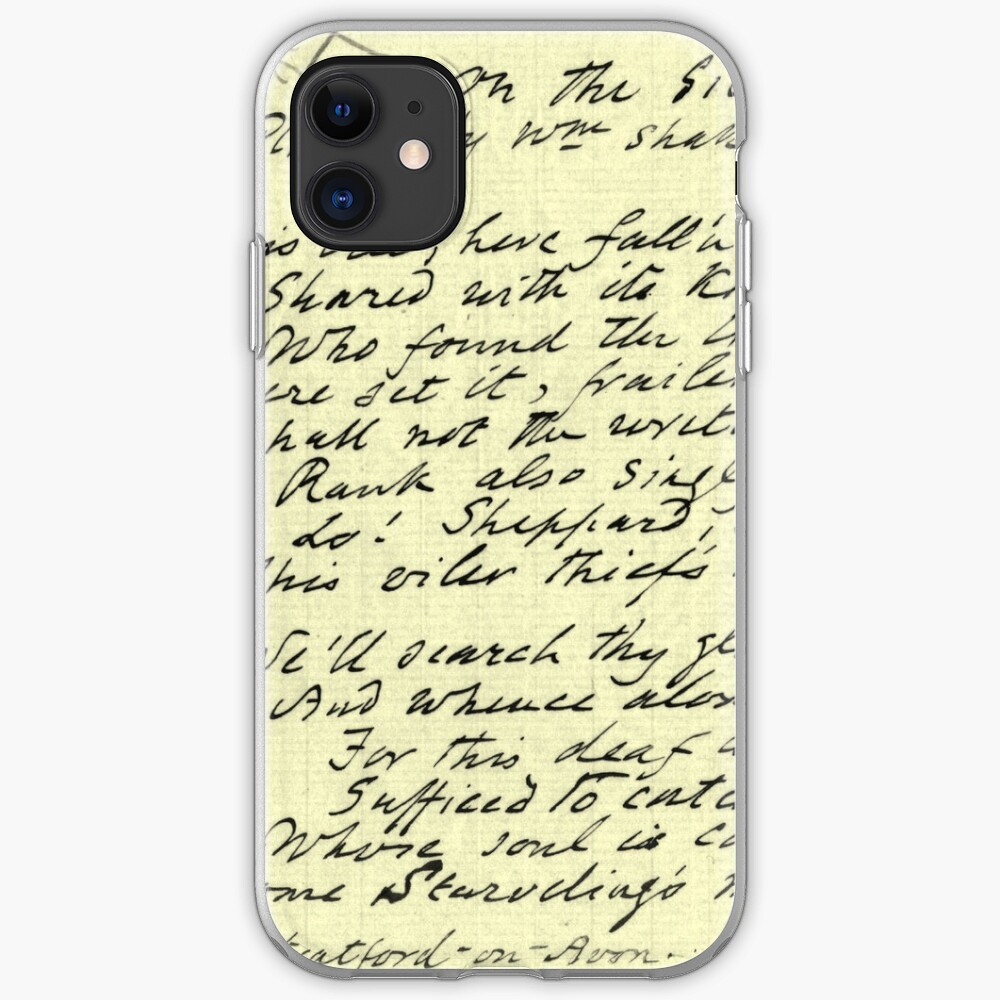 On the Si
y Wm Shak
is here fall'n
Shared with its K
Who found the
ere set it, frailer
hall not the wret
Rank also Singl
Lo! Sheppard,
his viler thief's
We'll search thy gl
And whence alon
For this deaf d
Sufficed to catc
Whose soul is ca
ome Starveling's n
tratford-on-Avon.